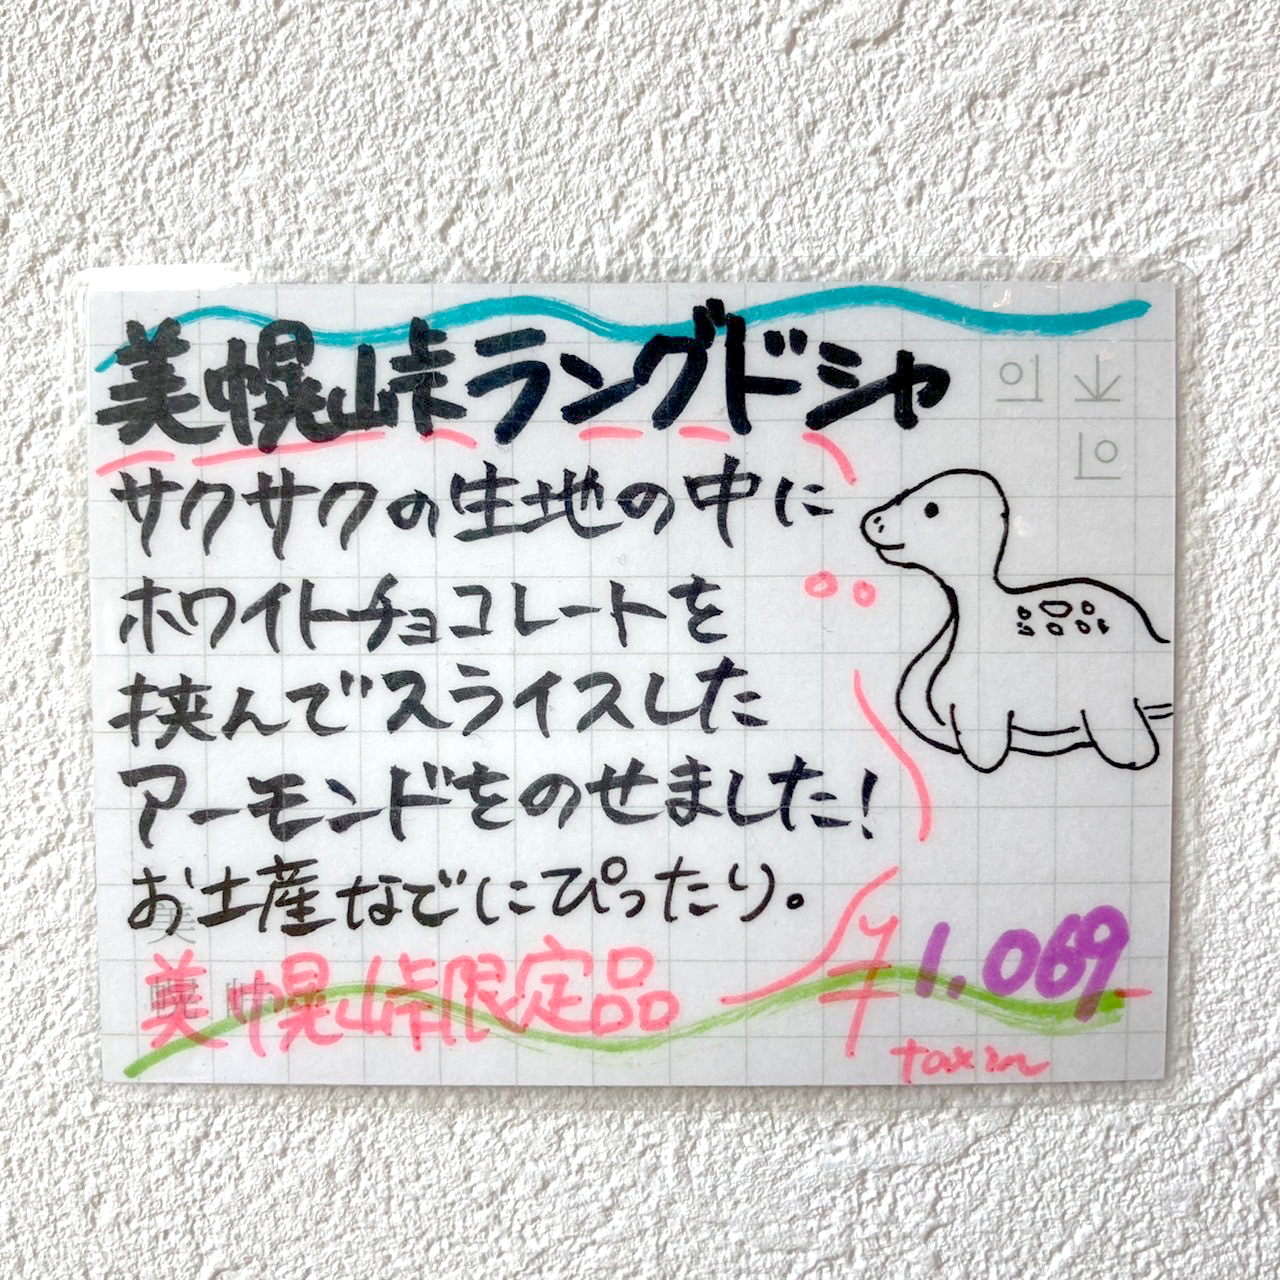 美幌峠ラングドシャ
サクサクの生地の中に
ホワイトチョコレートを
挟んでスライスした
アーモンドをのせました!
お土産などにぴったり。
美幌峠限定品
¥1.069
tax in